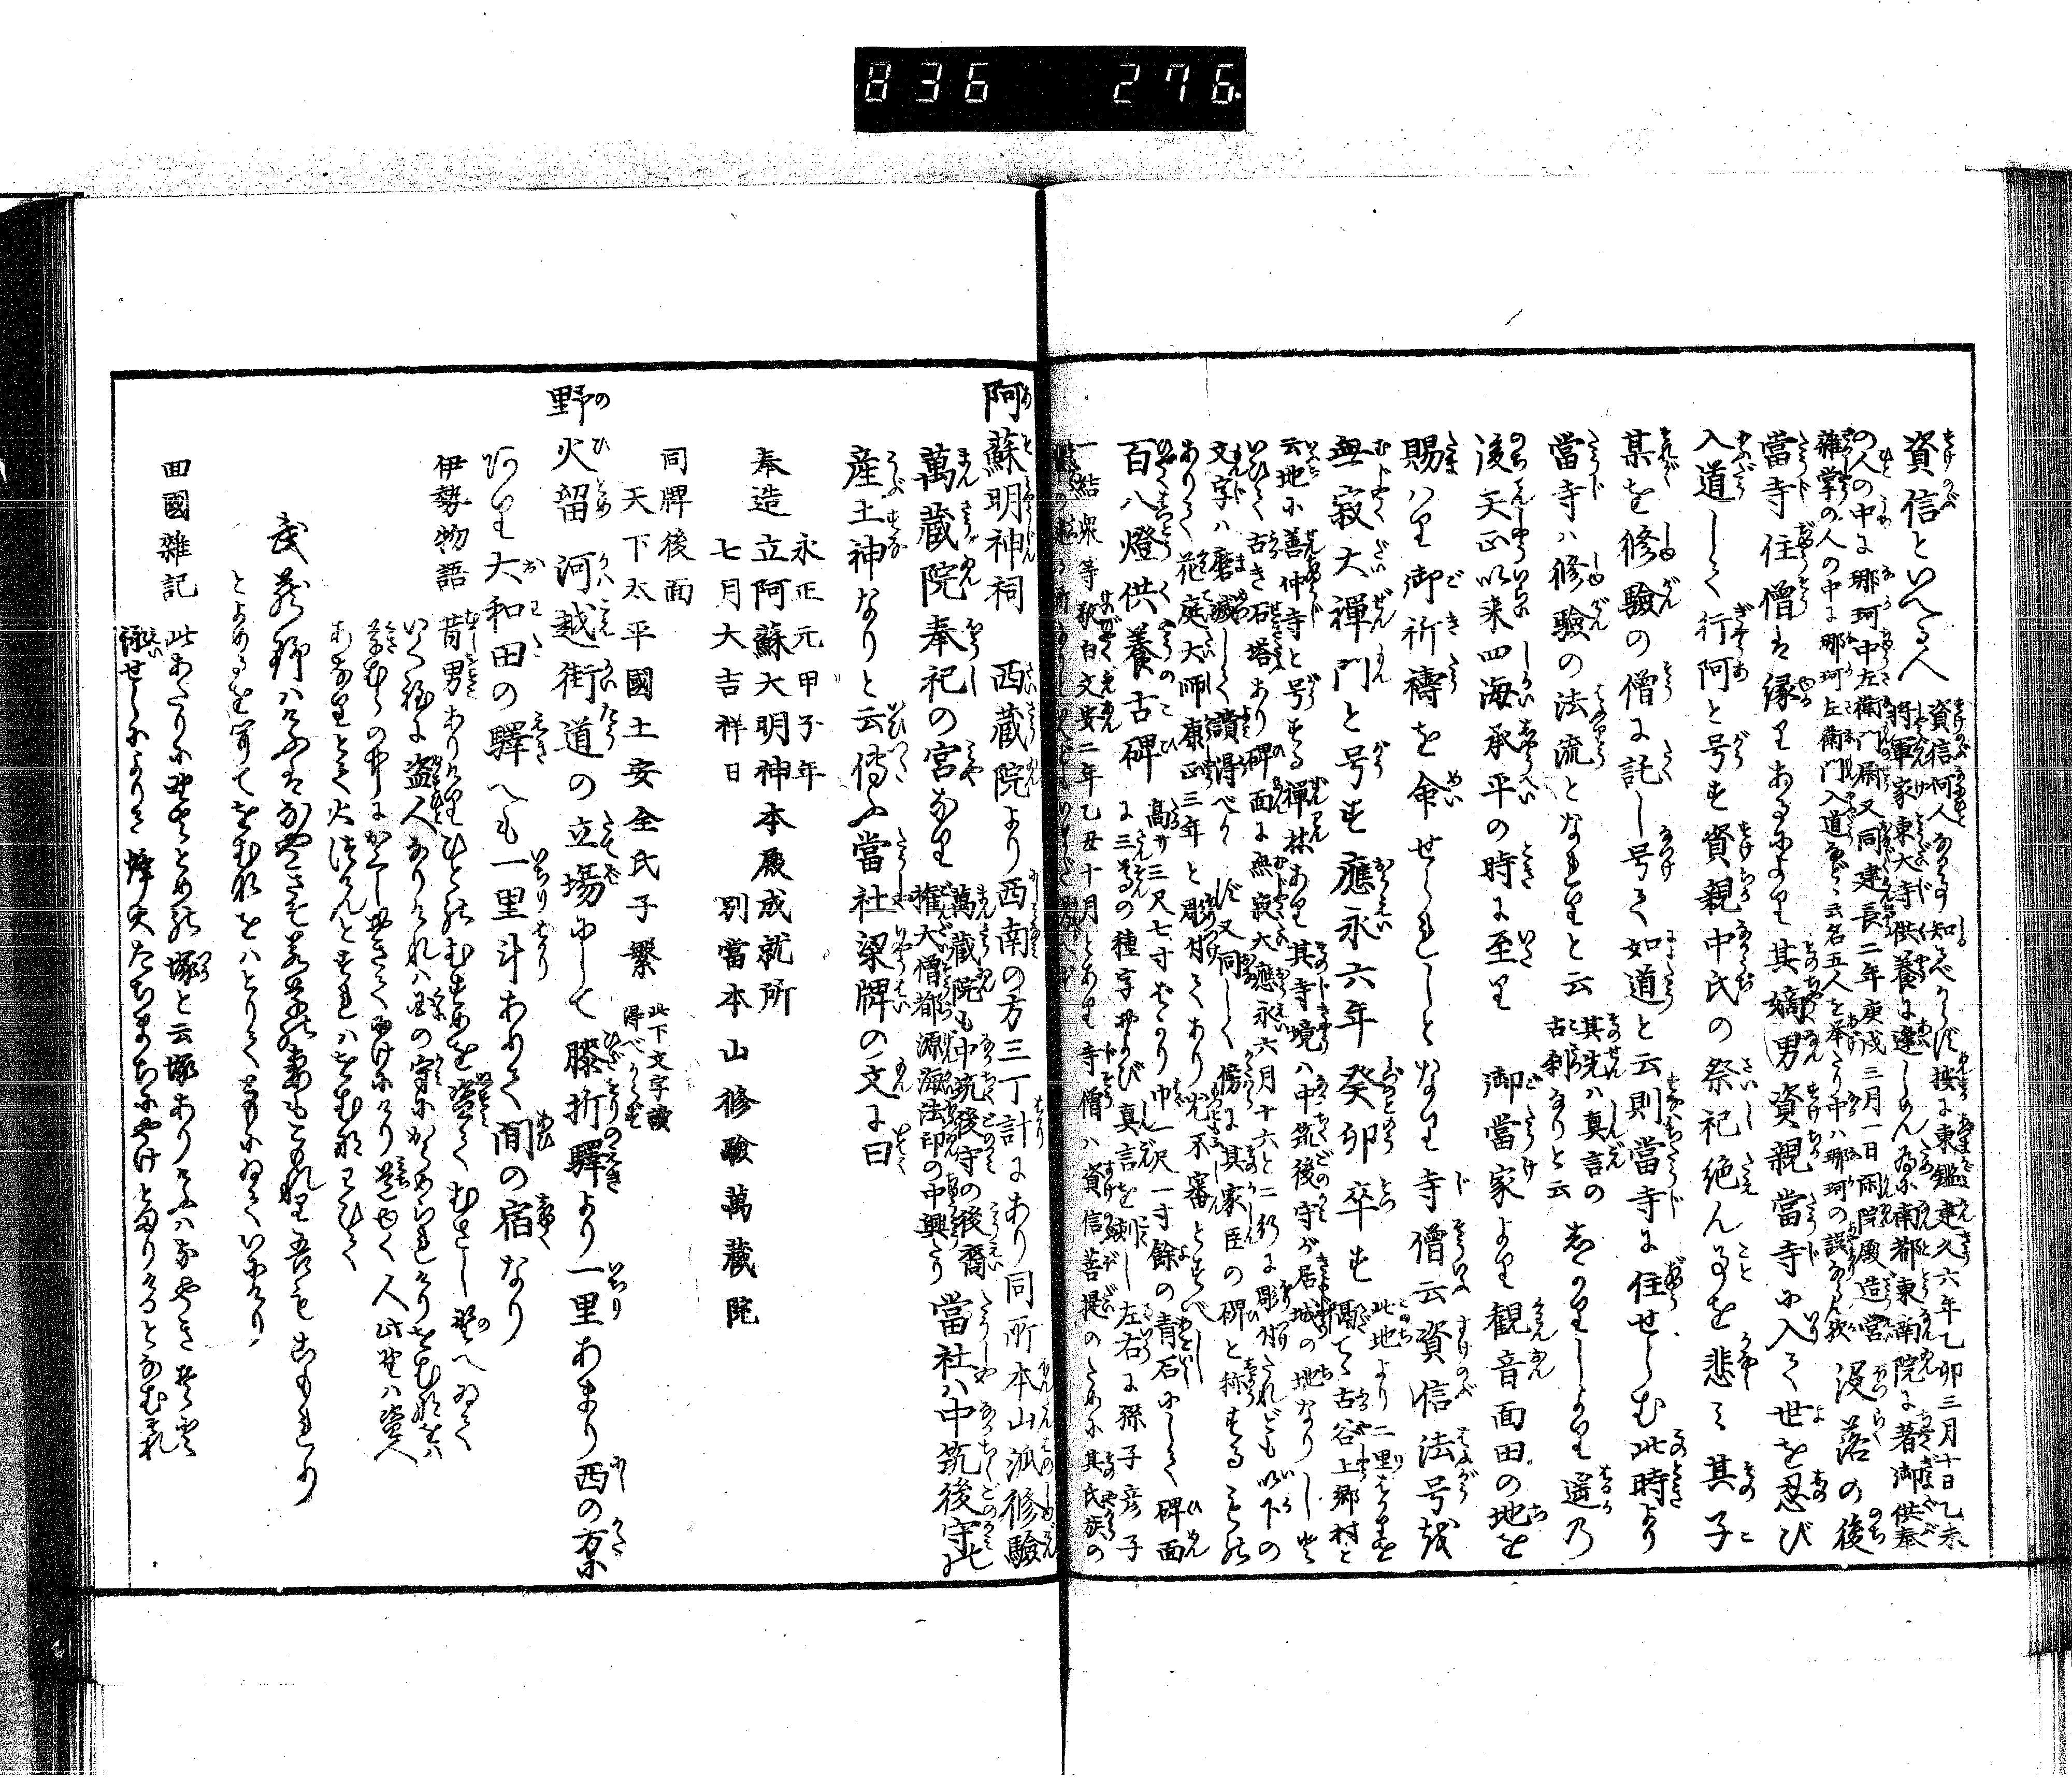 836 276.
資信といへる人
資信何人なる事知べからず按に東鑑建久六年乙卯三月十日乙未
将軍家東大寺供養に逢しめん為に南都東南院に著御供奉
の人の中に那珂中左衛門尉又同建長二年庚戌三月一日閑院殿造営
雑掌の人の中に那珂左衛門入道など云名五人を挙たり中ハ那珂の誤なる歟
没落の後
當寺住僧は縁りあるによりて其嫡男資親當寺に入て世を忍び
入道して行阿と号す資親中氏の祭祀絶ん事を悲ミ其子
某を修験の僧に託し号て如道と云則當寺に住せしむ此時より
當寺ハ修験の法流となれりと云
其先ハ真言の
古刹なりと云
遥乃
後天正以来四海承平の時に至り 御當家より観音面田の地を
賜ハり御祈禱を命せられしとなり寺僧云資信法号を
無寂大禅門と号す應永六年癸卯卒す
此地より二里
隔て古谷上郷村と
云地に善仲寺と号する禅林あり其寺境ハ中筑後守が居城の地なりし
いひて古き石塔あり碑面に無寂大應永六月十六と二行に彫付たれども以下の
文字ハ磨滅して讀得べからず又同しく傍に其家臣の碑と称する
ありて花庭大師康正三年と彫付てあり尤不審とすべし
百八燈供養古碑
高サ三尺七寸ばかり巾一尺一寸餘の青石にして碑面
に三尊の種字および真言を刻し左右に孫子彦子
一結衆等敬白文安二年乙丑十月とあり寺僧ハ資信菩提のために其氏族の
阿蘇明神祠 西蔵院より西南の方三丁計にあり同所本山派修験
萬蔵院奉祀の宮なり
萬蔵院も中筑後守の後裔
権大僧都源海法印の中興たり
當社ハ中筑後守此
産土神なりと云傳ふ當社梁牌の文に曰
永正元甲子年
奉造立阿蘇大明神本殿成就所
七月大吉祥日 別當本山修験萬蔵院
同牌後面
天下太平國土安全氏子繁
此下文字讀
得べからず
野火留 河越街道の立場にして膝折驛より一里あまり西の方
大和田の驛へも一里斗ありて間の宿なり
伊勢物語 昔男ありけりひとのむすめを盗てむさし野へゐて
いく程に盗人なりけれハ国の守にからめられけり女をハ
草むらの中にかくしおきてにけにけり道ゆく人此野ハ盗人
あなりとて火つけんとすれハ女わひて
武蔵野ハけふハなやきそ若草の妻もこもれり吾もこもれり
とよめるを聞て女をハとりてともにゐていにけり
回國雑記 此あたりに野火とめの塚と云塚ありけふハなやきそと
詠せしによりて烽火たちまちにやけとまりけるとなむ